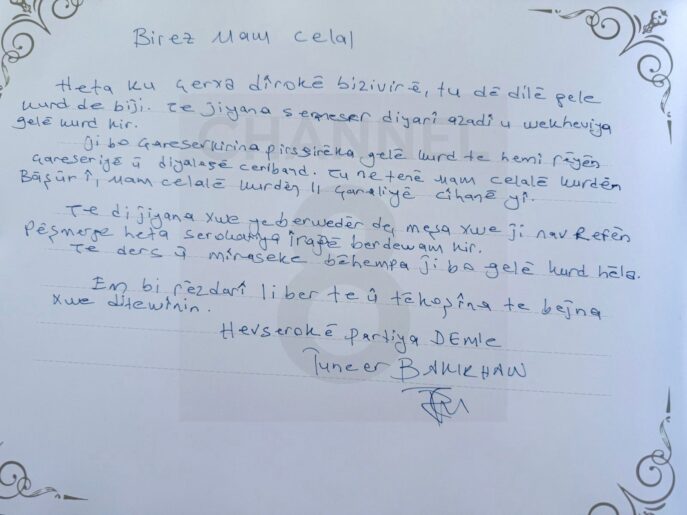 Birez Mam Celal
Heta ku çerxa dîrokê bizivirê, tu dê dilê gele
kurd de biji. Te jiyana serneser diyarî azadî u wekheviya
gelê kurd kir.
Ji bo çareserkirina pirssirêka gelê kurd te hemi rêyên
çareseriyê û diyalogê ceriband. Tu ne tenê Mam celalê kurdên
Başûr î, Mam celalê kurdên li çaraliyê cîhanê yî.
Te di jiyana xwe ye berwedêr de, meşa xwe ji nav Refên
Pêşmerge heta serokatiya îraqê berdewam kir.
Te ders û mîraseke bêhempa ji bo gelê kurd hêla.
Em bi rêzdarî li ber te û têkoşîna te bejna
xwe ditewînin.
Hevserokê partiya DEM'e
Tuncer BAKIRHAN
CHANNEL
8